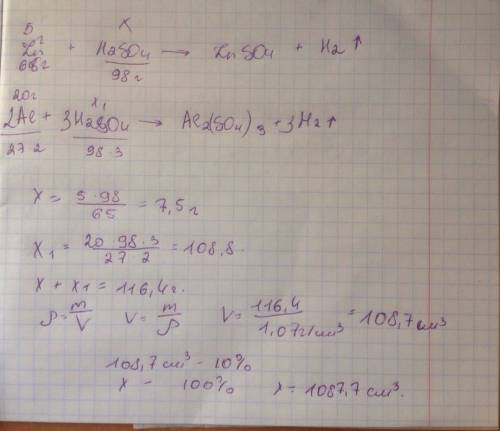 5г X
Zn + H2SO4 → ZnSO4 + H2↑
65г 98г
20г X1
2Al + 3H2SO4 → Al2(SO4)3 + 3H2↑
27·2 98·3
X = 5·98 / 65 = 7,5г
X1 = 20·98·3 / 27·2 = 108,8.
X + X1 = 116,4г.
ρ = m/V V = m/ρ V = 116,4 / 1,07г/см³ = 108,7см³
108,7см³ – 10%
X – 100% X = 1087,7см³.